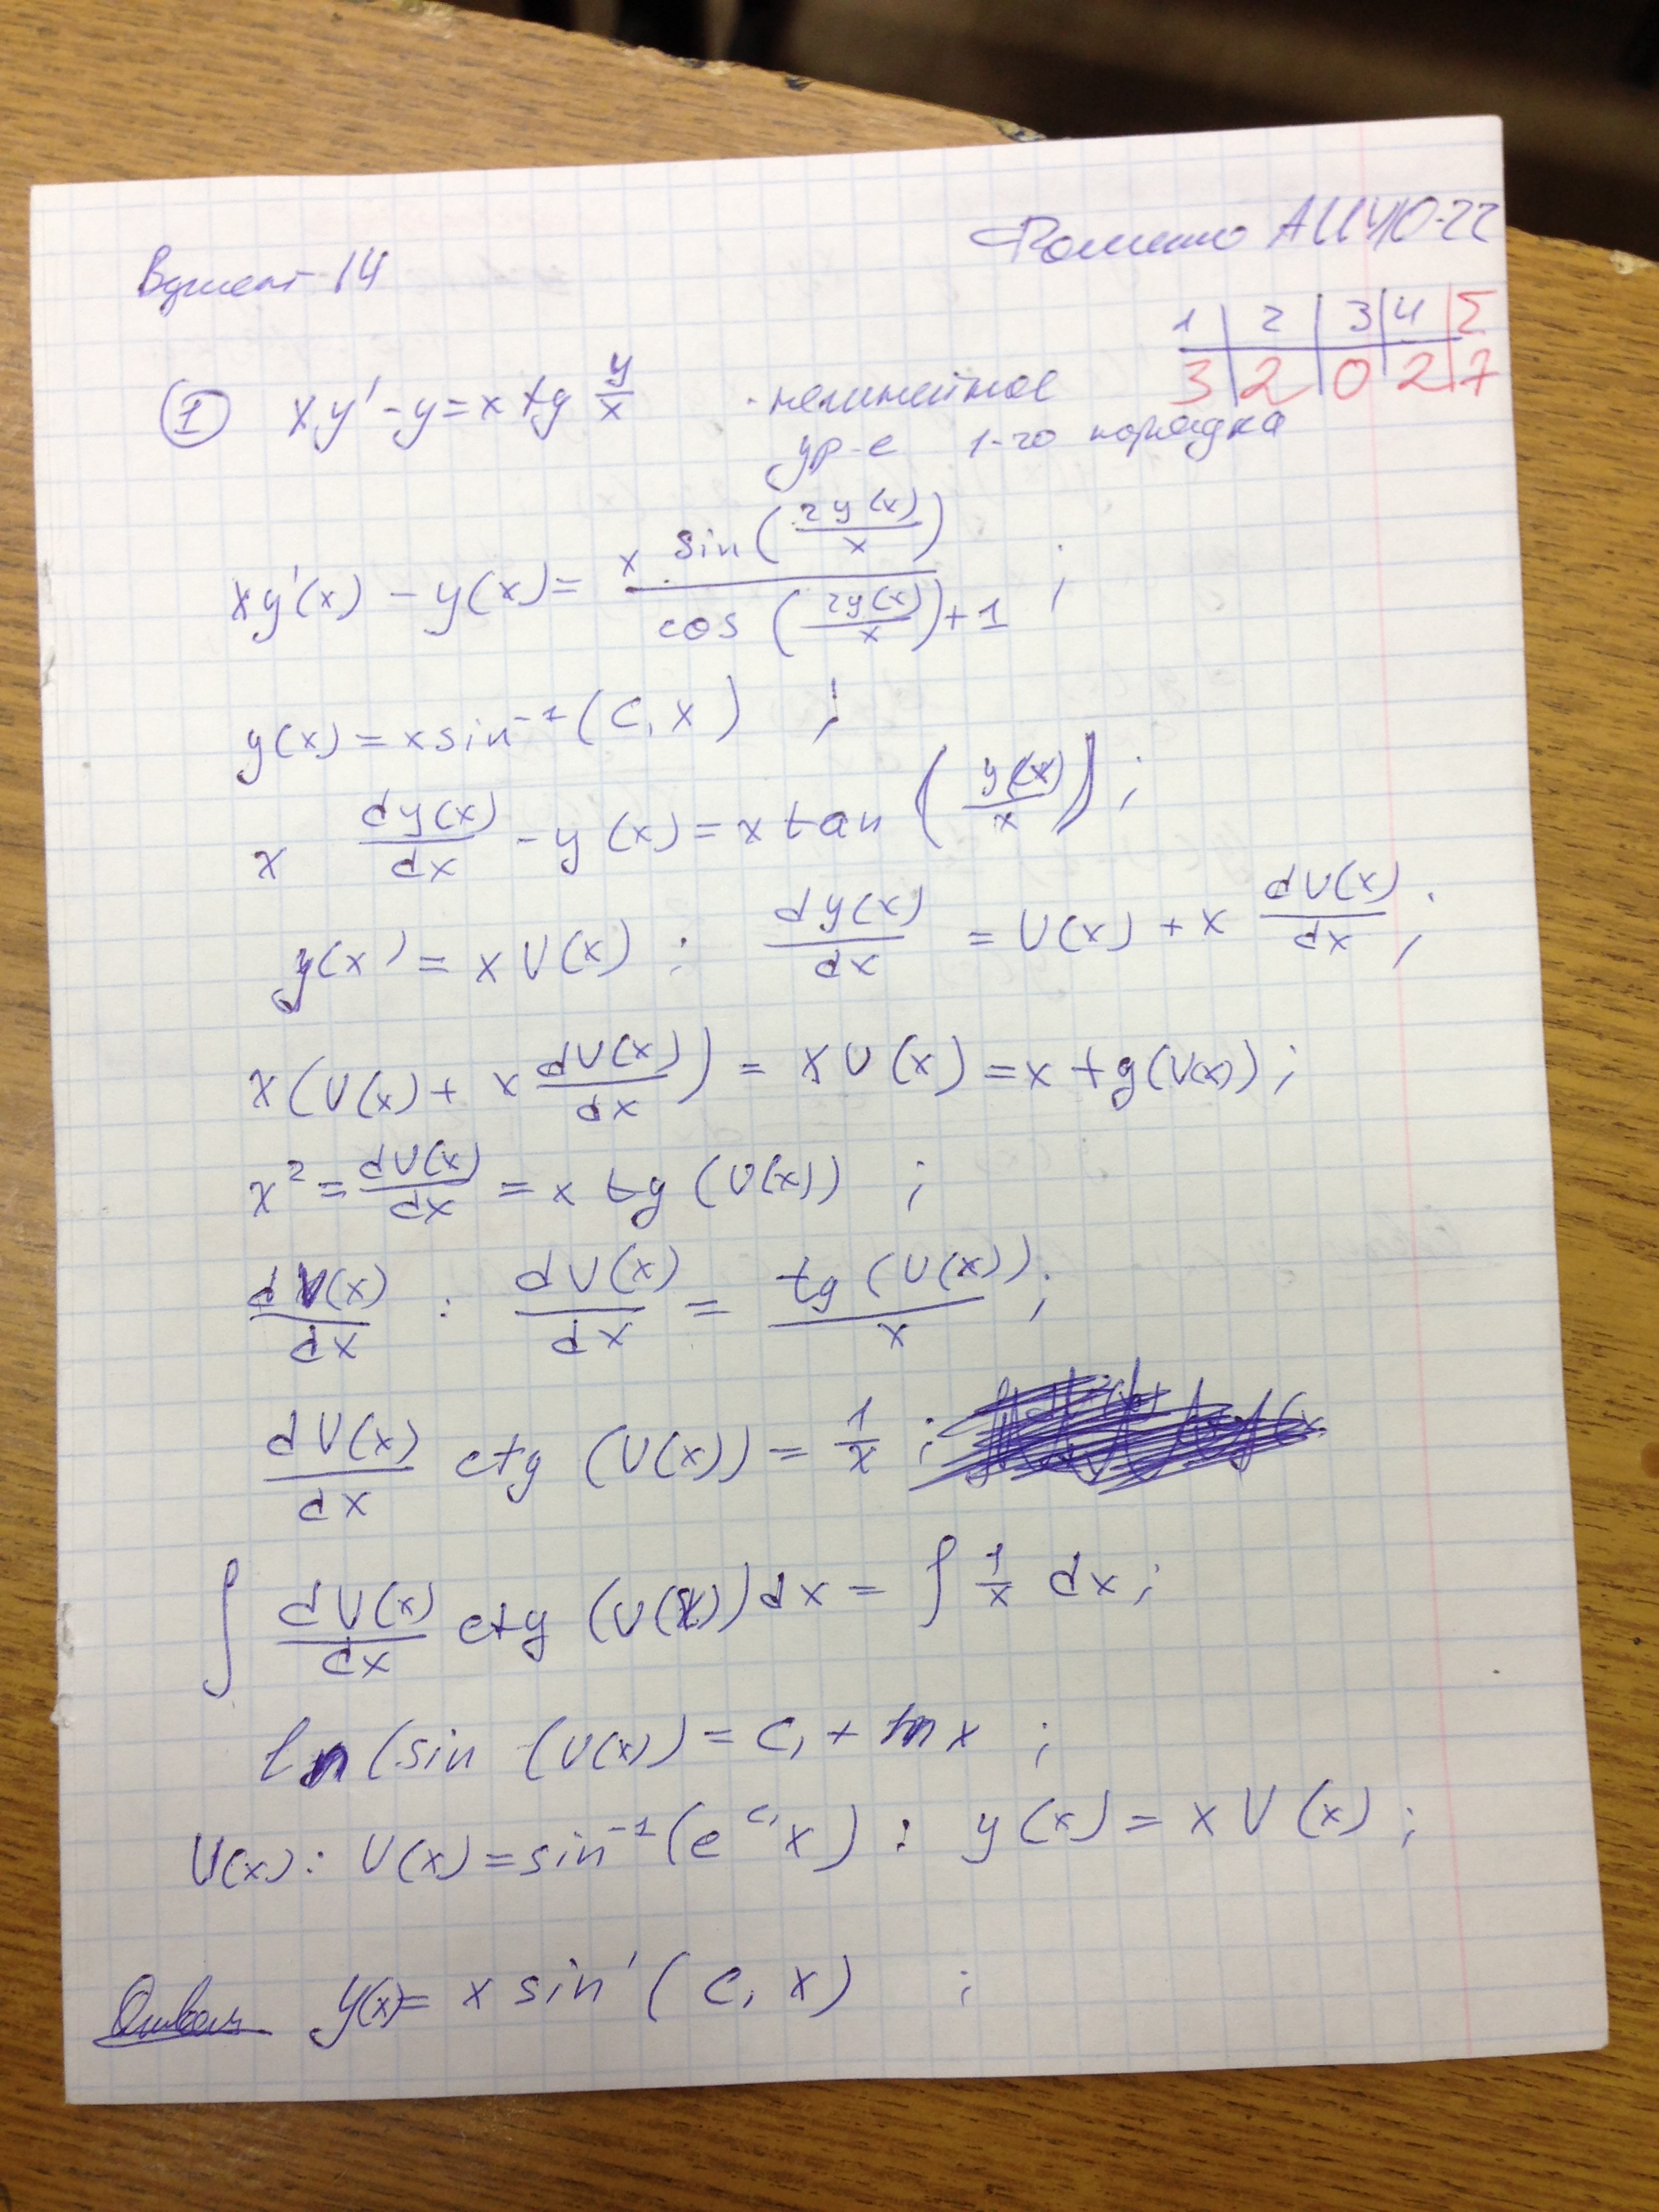 Вариант 14
АИЧЮ-22
1 2 3 4 Σ
3 2 0 2 7
① xy' - y = x tg y/x · нелинейное
ур-е 1-го порядка
xy'(x) - y(x) = x sin(2y(x)/x) / cos(2y(x)/x)+1 ;
y(x) = x sin⁻¹(C₁x) ;
x dy(x)/dx - y(x) = x tan(y(x)/x) ;
y(x) = x U(x) : dy(x)/dx = U(x) + x dU(x)/dx ;
x(U(x) + x dU(x)/dx) = xU(x) = x tg(U(x)) ;
x² = dU(x)/dx = x tg (U(x)) ;
dU(x)/dx : dU(x)/dx = tg (U(x))/x ;
dU(x)/dx ctg (U(x)) = 1/x ;
∫ dU(x)/dx ctg (U(x))dx = ∫ 1/x dx ;
ln(sin (U(x)) = C₁ + ln x ;
U(x) : U(x) = sin⁻¹(e^C₁ x) : y(x) = x U(x) ;
Ответ y(x)= x sin'(C₁ x) ;